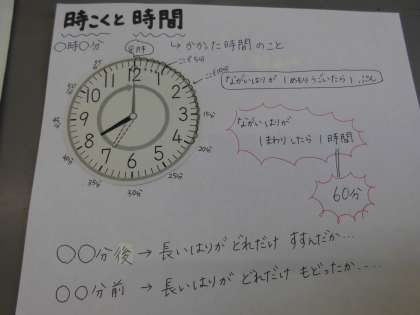 時こくと時間
〇時〇分
→ かかった時間のこと
ながいはりが 1めもりうごいたら 1ぷん
ながいはりが
1まわりしたら 1時間
60分
12
1
2
3
4
5
6
7
8
9
10
11
15分
20分
25分
30分
35分
〇〇分後 → 長いはりが どれだけ すすんだか…
〇〇分前 → 長いはりが どれだけ もどったか…..